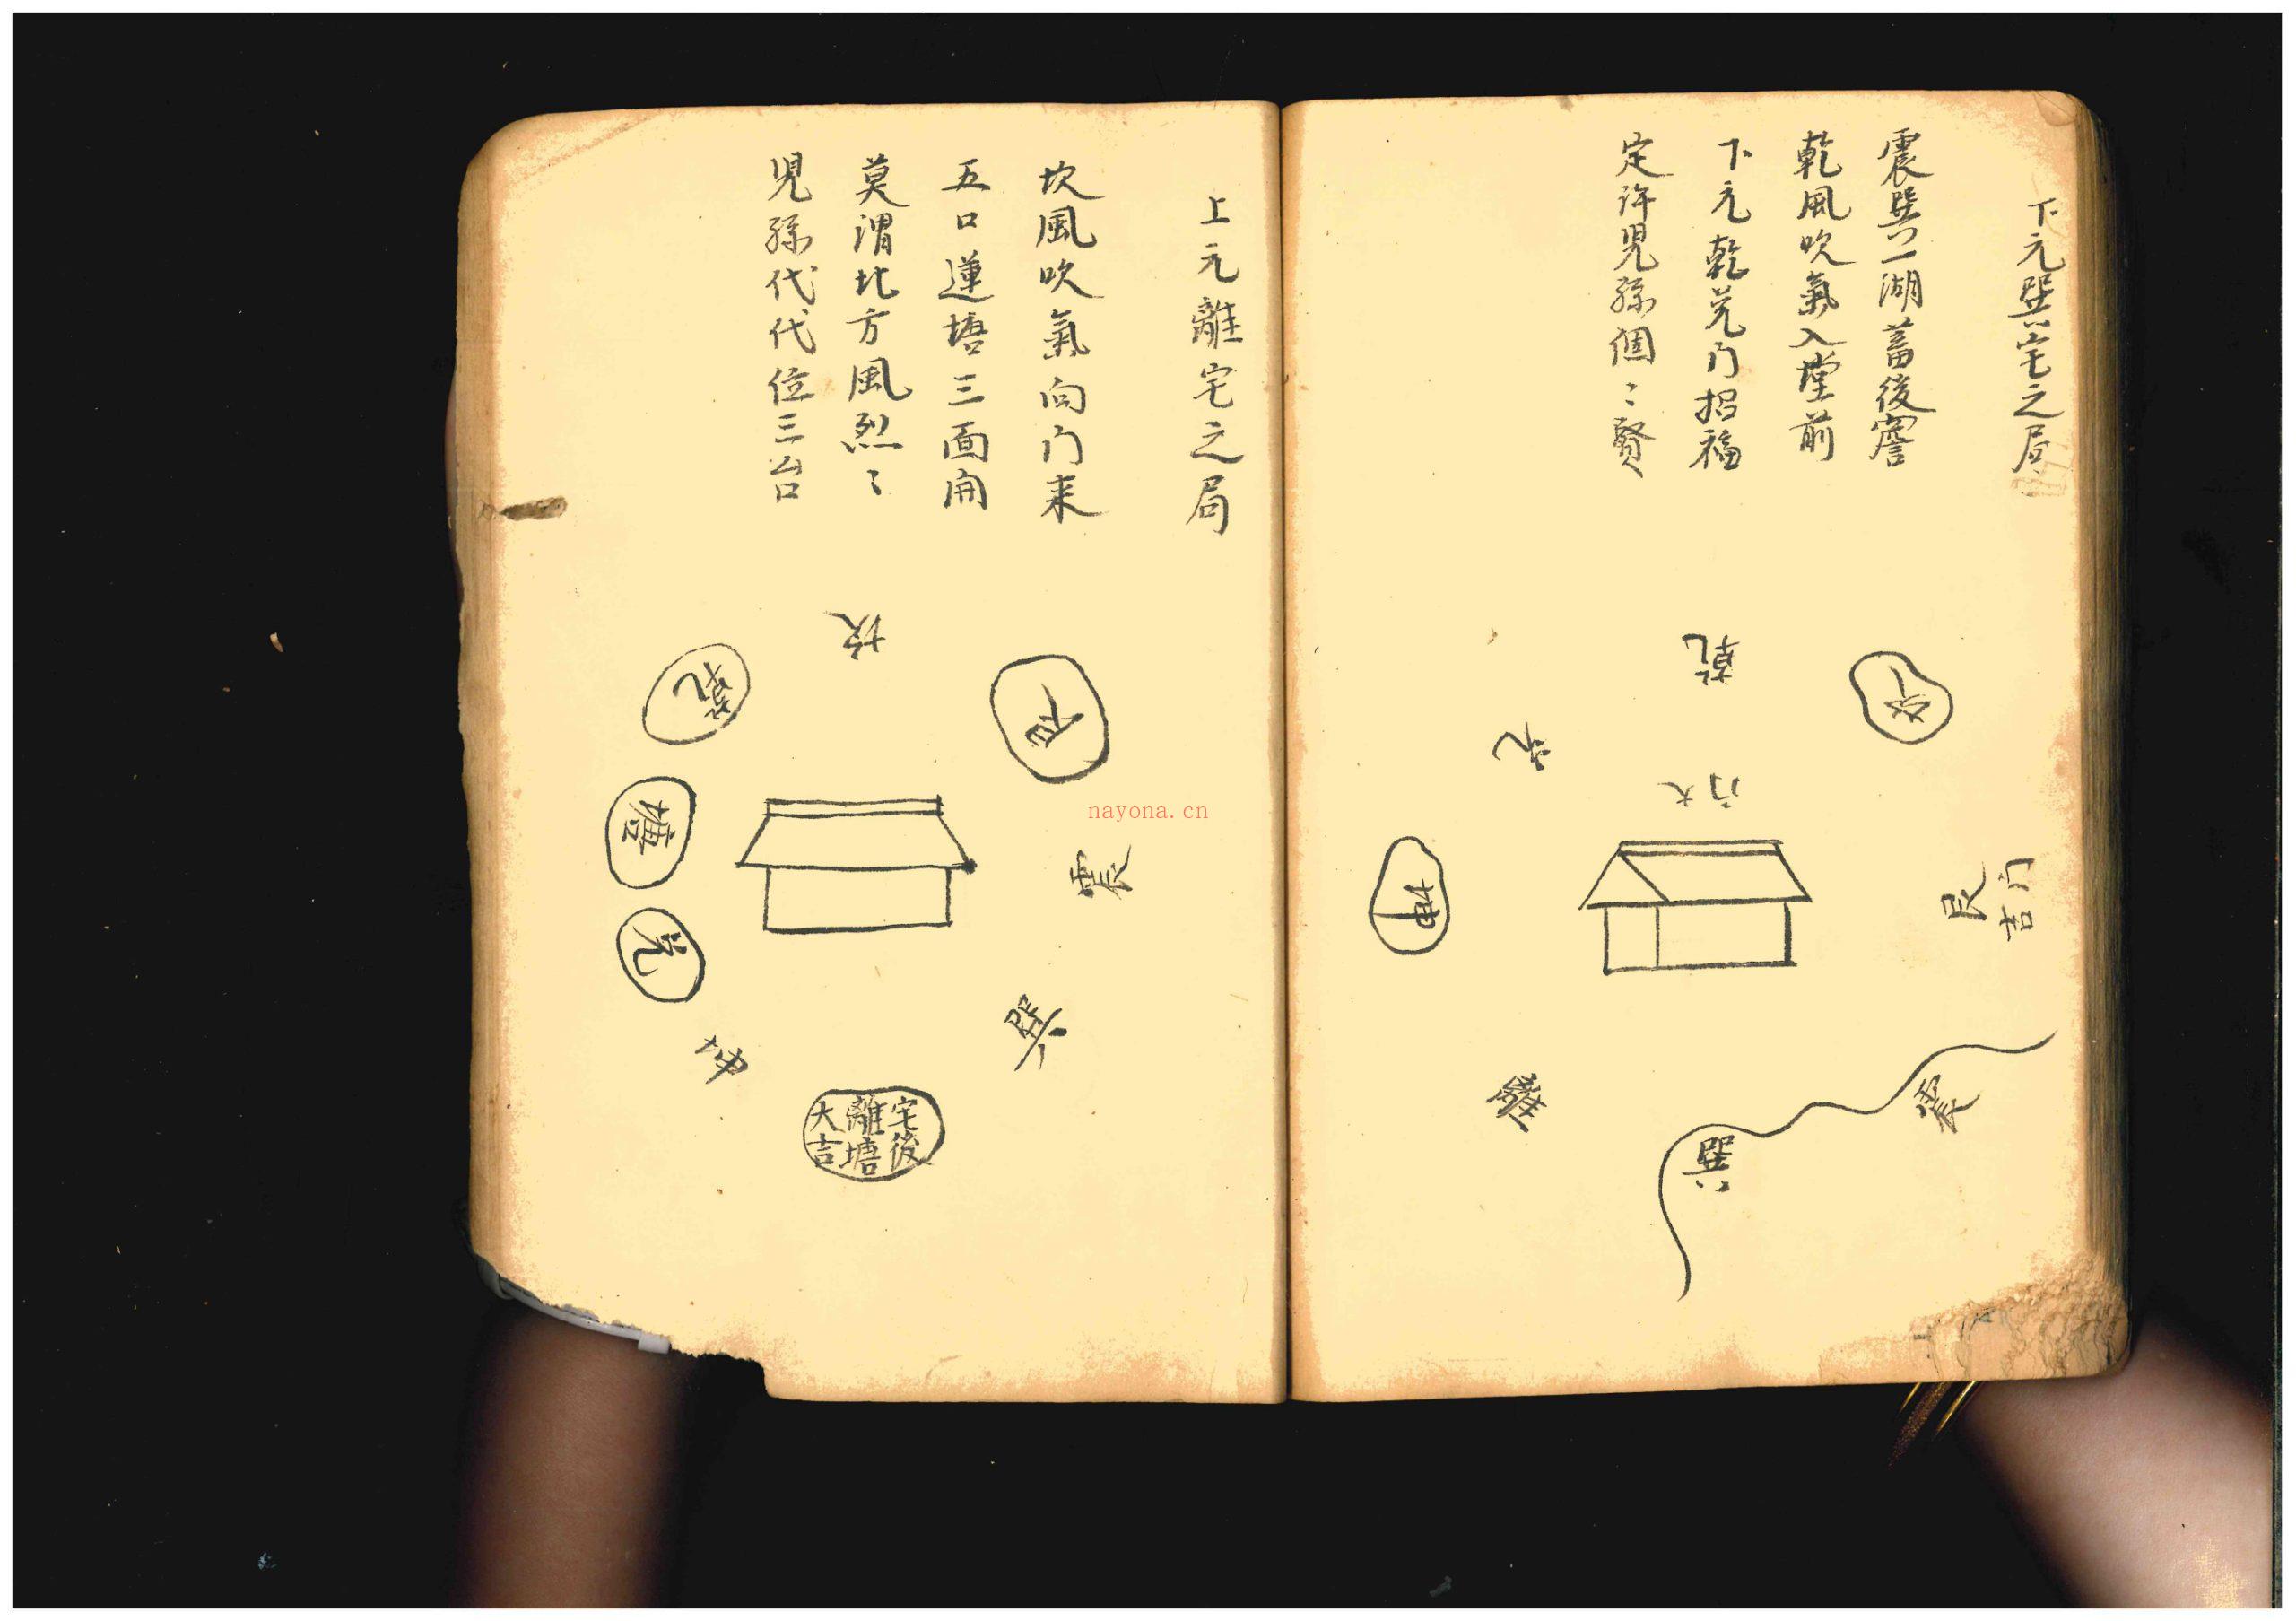 下元巽宅之局
震巽一湖蓄後窨
乾風吹氣入堂前
下元乾兌门招福
定许児孫個〻賢
乾
坎
兌
大门
坤
艮
吉门
離
震
巽
上元離宅之局
坎風吹氣向门来
五口蓮塘三面開
莫谓北方風烈〻
児孫代代位三台
坎
乾
塘
兌
震
巽
坤
宅後
離塘
大吉
nayona.cn